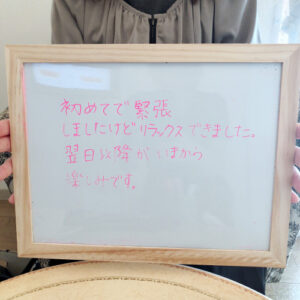 初めてで緊張
しましたけどリラックスできました。
翌日以降が いまから
楽しみです。